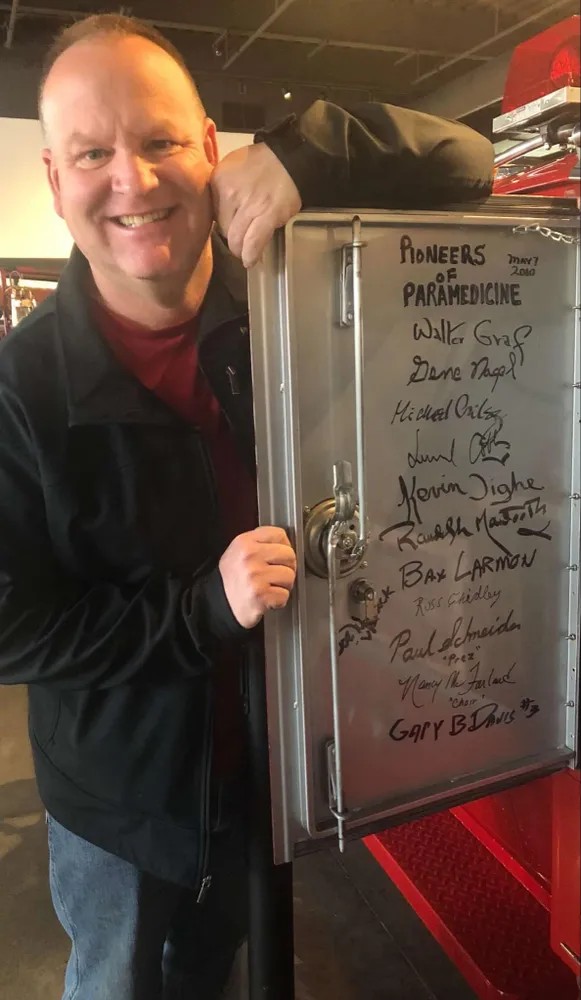 PIONEERS
OF
PARAMEDICINE
MAY 7
2010
Walter Graf
Gene Nagel
Michael
Kevin Tighe
Randolph Mantooth
BAX LARMON
Ross Chidley
Paul Schneider
"Prez"
Nancy McFarland
"Chair"
GARY B DAVIS #3